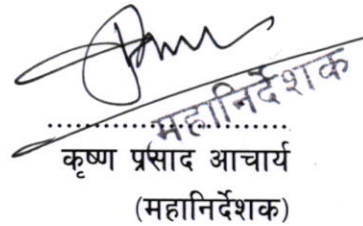 महानिर्देशक
....................
कृष्ण प्रसाद आचार्य
(महानिर्देशक)